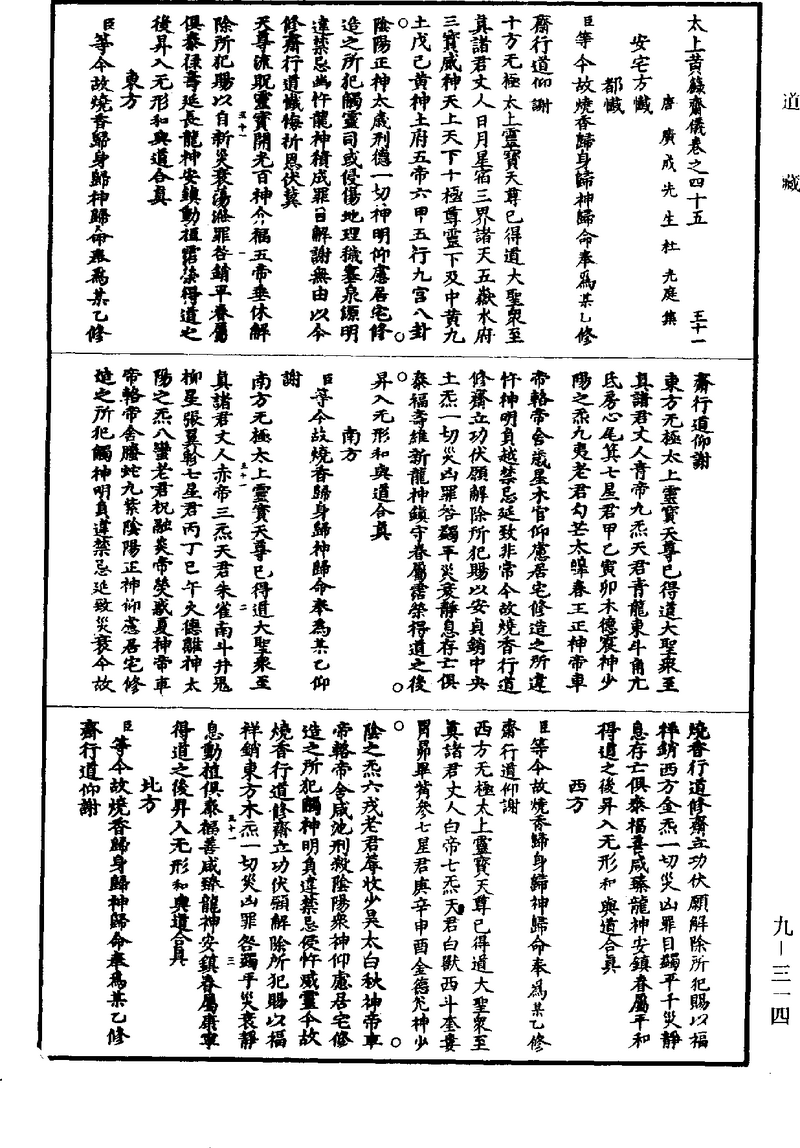 道藏
太上黃籙齋儀卷之四十五 五十一
唐廣成先生杜光庭集
安宅方懺
都懺
臣等今故燒香歸身歸神歸命奉為某乙修
齋行道仰謝
十方无極太上靈寶天尊已得道大聖眾至
真諸君丈人日月星宿三界諸天五嶽水府
三寶威神天上天下十極尊靈下及中黃九
土戊己黃神土府五帝六甲五行九宮八卦
陰陽正神太歲刑德一切神明仰慮居宅修
造之所犯觸靈司或侵傷地理穢塞泉源明
違禁忌幽忤龍神積成罪目解謝無由以今
修齋行道懺悔祈恩伏冀
天尊流貺靈寶開光百神介福五帝垂休解
除所犯賜以自新災衰蕩滌罪咎銷平眷屬
俱泰祿壽延長龍神安鎮動植霑榮得道之
後昇入无形和與道合真
東方
臣等今故燒香歸身歸神歸命奉為某乙修
齋行道仰謝
東方无極太上靈寶天尊已得道大聖眾至
真諸君丈人青帝九炁天君青龍東斗角亢
氐房心尾箕七星君甲乙寅卯木德震神少
陽之炁九夷老君勾芒太皞春王正神帝車
帝輅帝舍歲星木官仰慮居宅修造之所違
忤神明負越禁忌延致非常今故燒香行道
修齋立功伏願解除所犯賜以安貞銷中央
土炁一切災凶罪咎蠲平災衰靜息存亡俱
泰福壽維新龍神鎮守眷屬霑榮得道之後
昇入无形和與道合真
南方
臣等今故燒香歸身歸神歸命奉為某乙仰
謝
南方无極太上靈寶天尊已得道大聖眾至
真諸君丈人赤帝三炁天君朱雀南斗井鬼
柳星張翼軫七星君丙丁巳午火德離神太
陽之炁八蠻老君祝融炎帝熒惑夏神帝車
帝輅帝舍螣蛇九紫陰陽正神仰慮居宅修
造之所犯觸神明負違禁忌延致災衰今故
燒香行道修齋立功伏願解除所犯賜以福
祥銷西方金炁一切災凶罪目蠲平千災靜
息存亡俱泰福善咸臻龍神安鎮眷屬平和
得道之後昇入无形和與道合真
西方
臣等今故燒香歸身歸神歸命奉為某乙修
齋行道仰謝
西方无極太上靈寶天尊已得道大聖眾至
真諸君丈人白帝七炁天君白獸西斗奎婁
胃昴畢觜參七星君庚辛申酉金德兊神少
陰之炁六戎老君蓐收少昊太白秋神帝車
帝輅帝舍咸池刑殺陰陽眾神仰慮居宅修
造之所犯觸神明負違禁忌侵忤威靈今故
燒香行道修齋立功伏願解除所犯賜以福
祥銷東方木炁一切災凶罪咎蠲平災衰靜
息動植俱泰福善咸臻龍神安鎮眷屬康寧
得道之後昇入无形和與道合真
北方
臣等今故燒香歸身歸神歸命奉為某乙修
齋行道仰謝
五十一 一
五十一 二
五十一 三
九—三一四